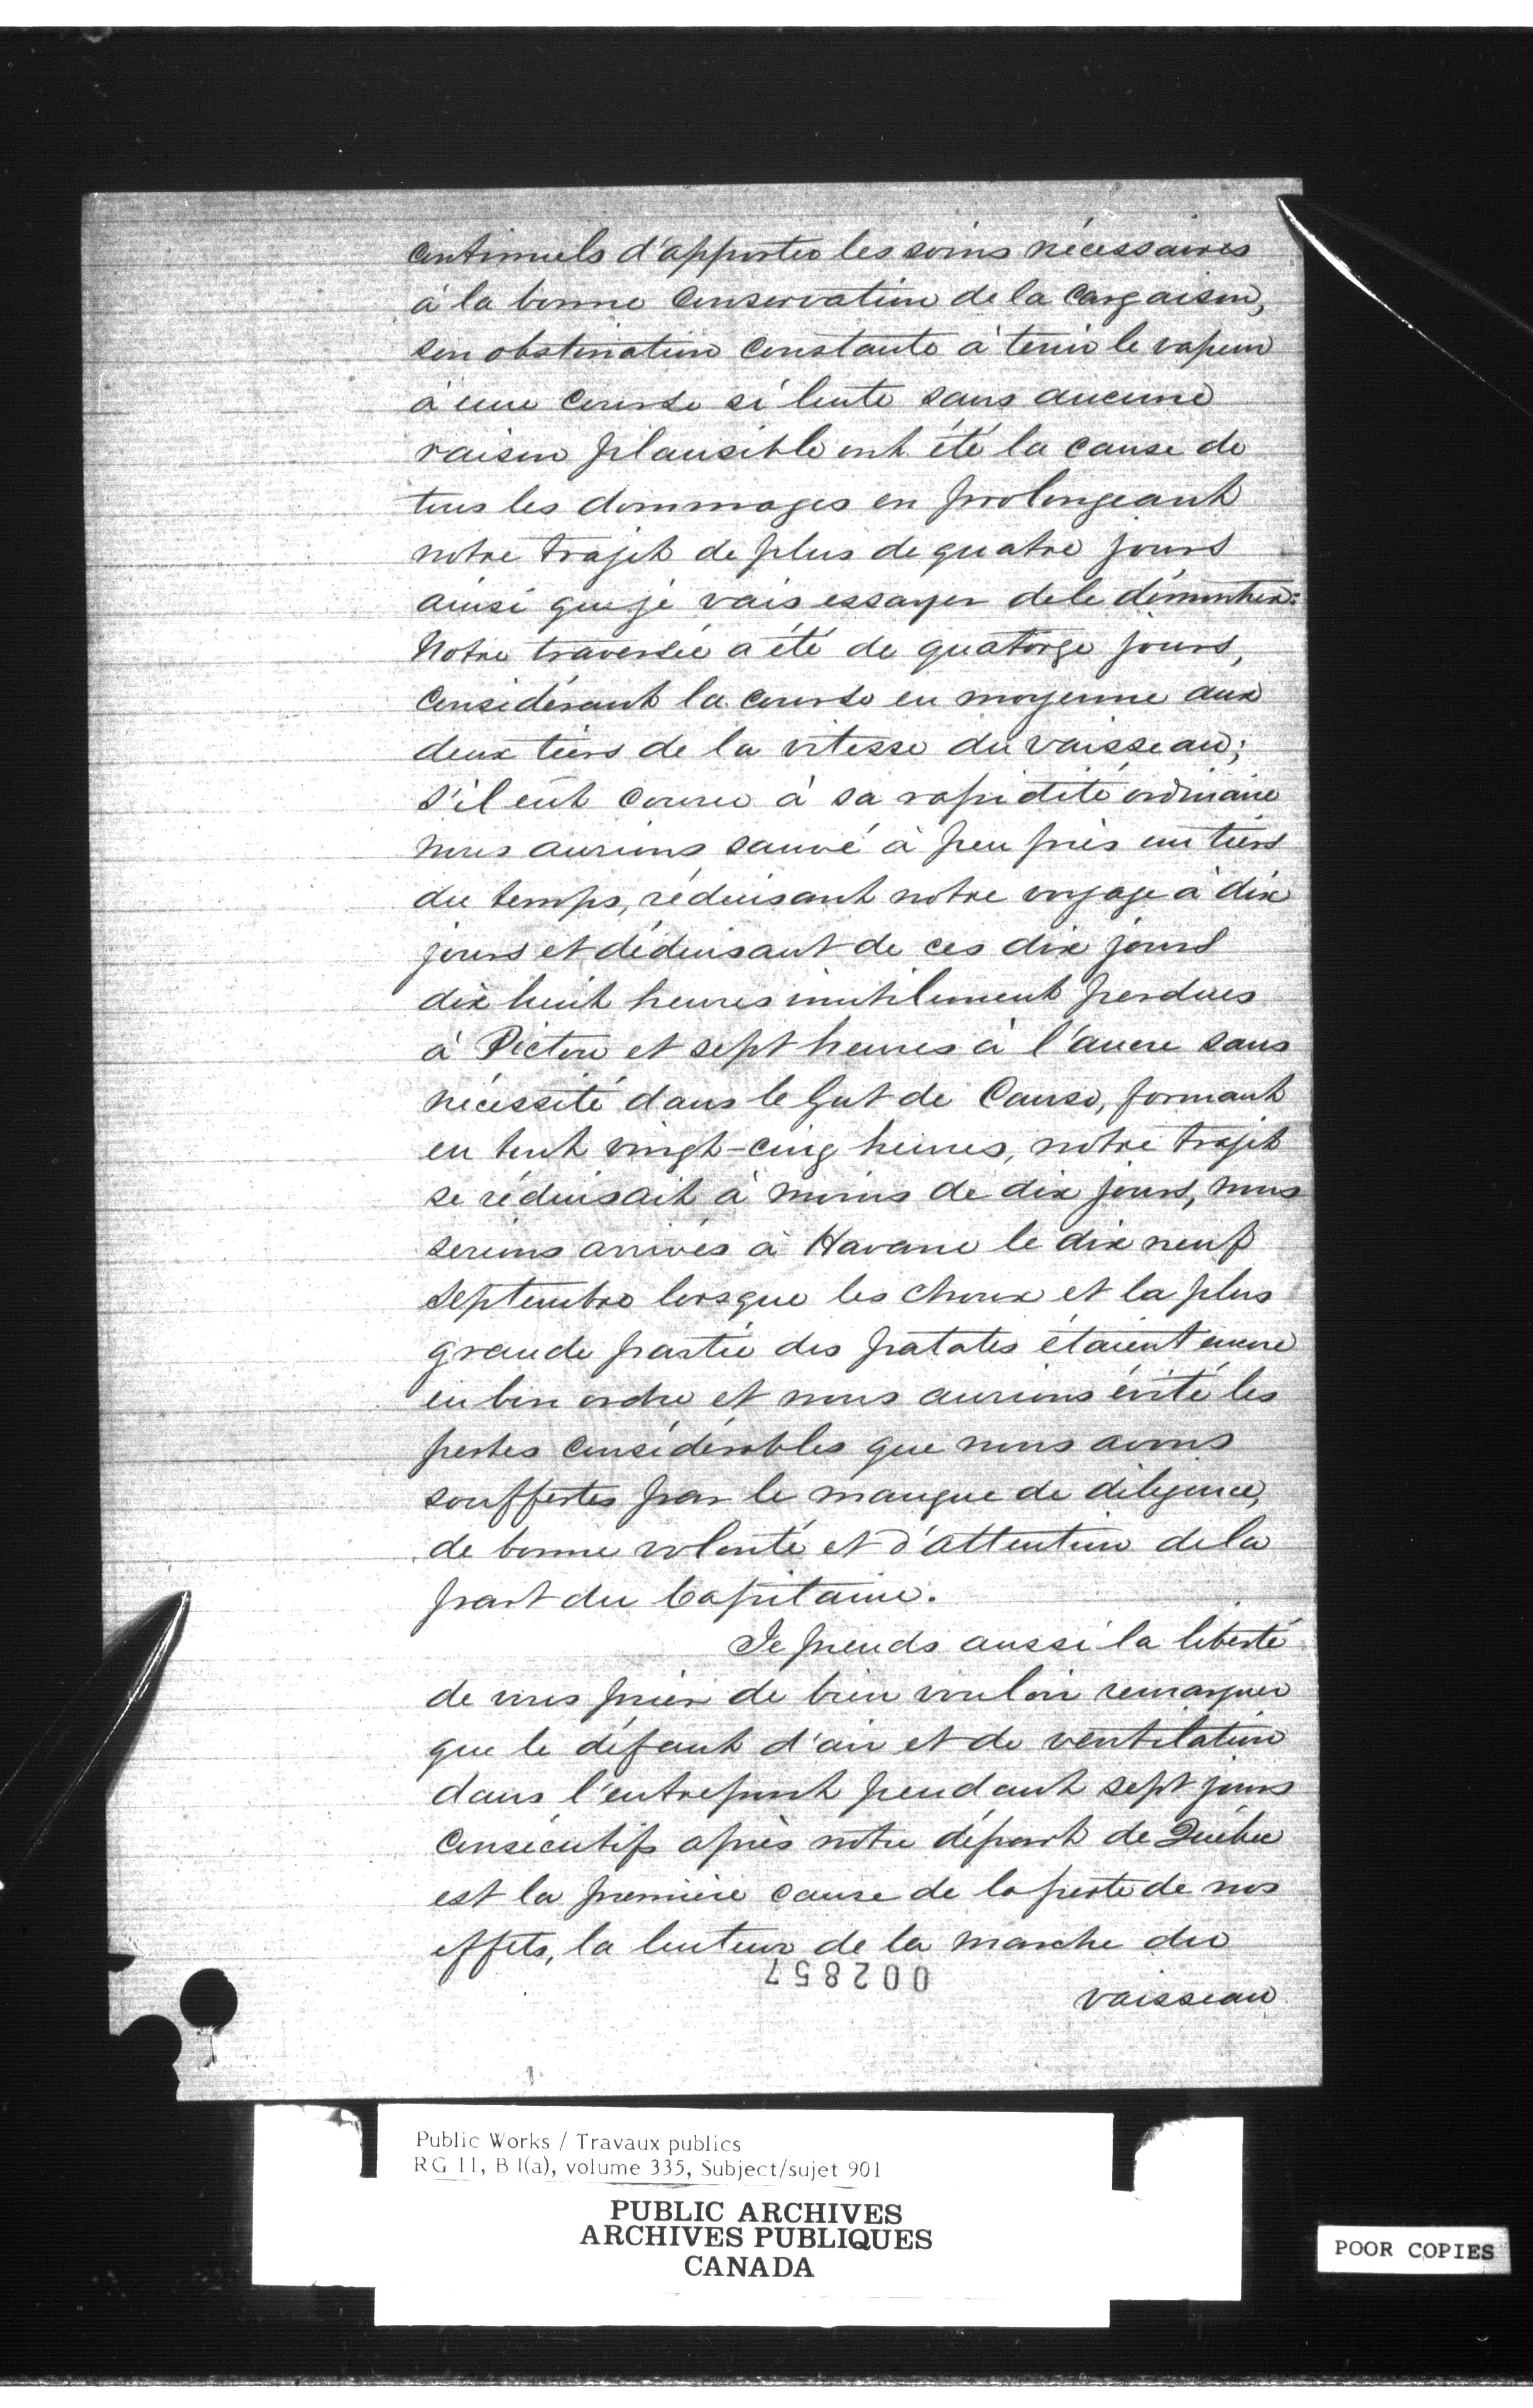 continuels d'apporter les soins nécessaires
à la bonne conservation de la cargaison,
son obstination constante à tenir le vapeur
à une course si lente sans aucune
raison plausible ont été la cause de
tous les dommages en prolongeant
notre trajet de plus de quatre jours
ainsi que je vais essayer de le démontrer:
Notre traversée a été de quatorze jours,
considérant la course en moyenne aux
deux tiers de la vitesse du vaisseau;
s'il eût couru à sa rapidité ordinaire
nous aurions sauvé à peu près un tiers
du temps, réduisant notre voyage à dix
jours et déduisant de ces dix jours
dix huit heures inutilement perdues
à Pictou et sept heures à l'ancre sans
nécessité dans le Gut de Canso, formant
en tout vingt-cinq heures, notre trajet
se réduisait à moins de dix jours, nous
serions arrivés à Havane le dix neuf
septembre lorsque les choux et la plus
grande partie des patates étaient encore
en bon ordre et nous aurions évité les
pertes considérables que nous avons
souffertes par le manque de diligence,
de bonne volonté et d'attention de la
part du Capitaine.
Je prends aussi la liberté
de vous prier de bien vouloir remarquer
que le défaut d'air et de ventilation
dans l'entrepont pendant sept jours
consécutifs après notre départ de Québec
est la première cause de la perte de nos
effets, la lenteur de la marche du
002857
vaisseau
Public Works / Travaux publics
RG 11, B 1(a), volume 335, Subject/sujet 901
PUBLIC ARCHIVES
ARCHIVES PUBLIQUES
CANADA
POOR COPIES